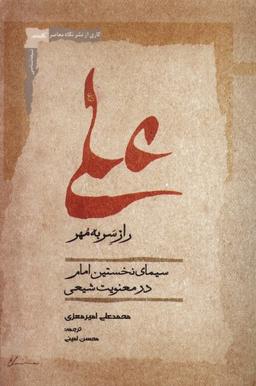 کاری از نشر نگاه معاصر
علی
راز سر به مُهر
سیمای نخستین امام
در معنویت شیعی
محمدعلی امیرمعزی
ترجمه:
محسن امینی